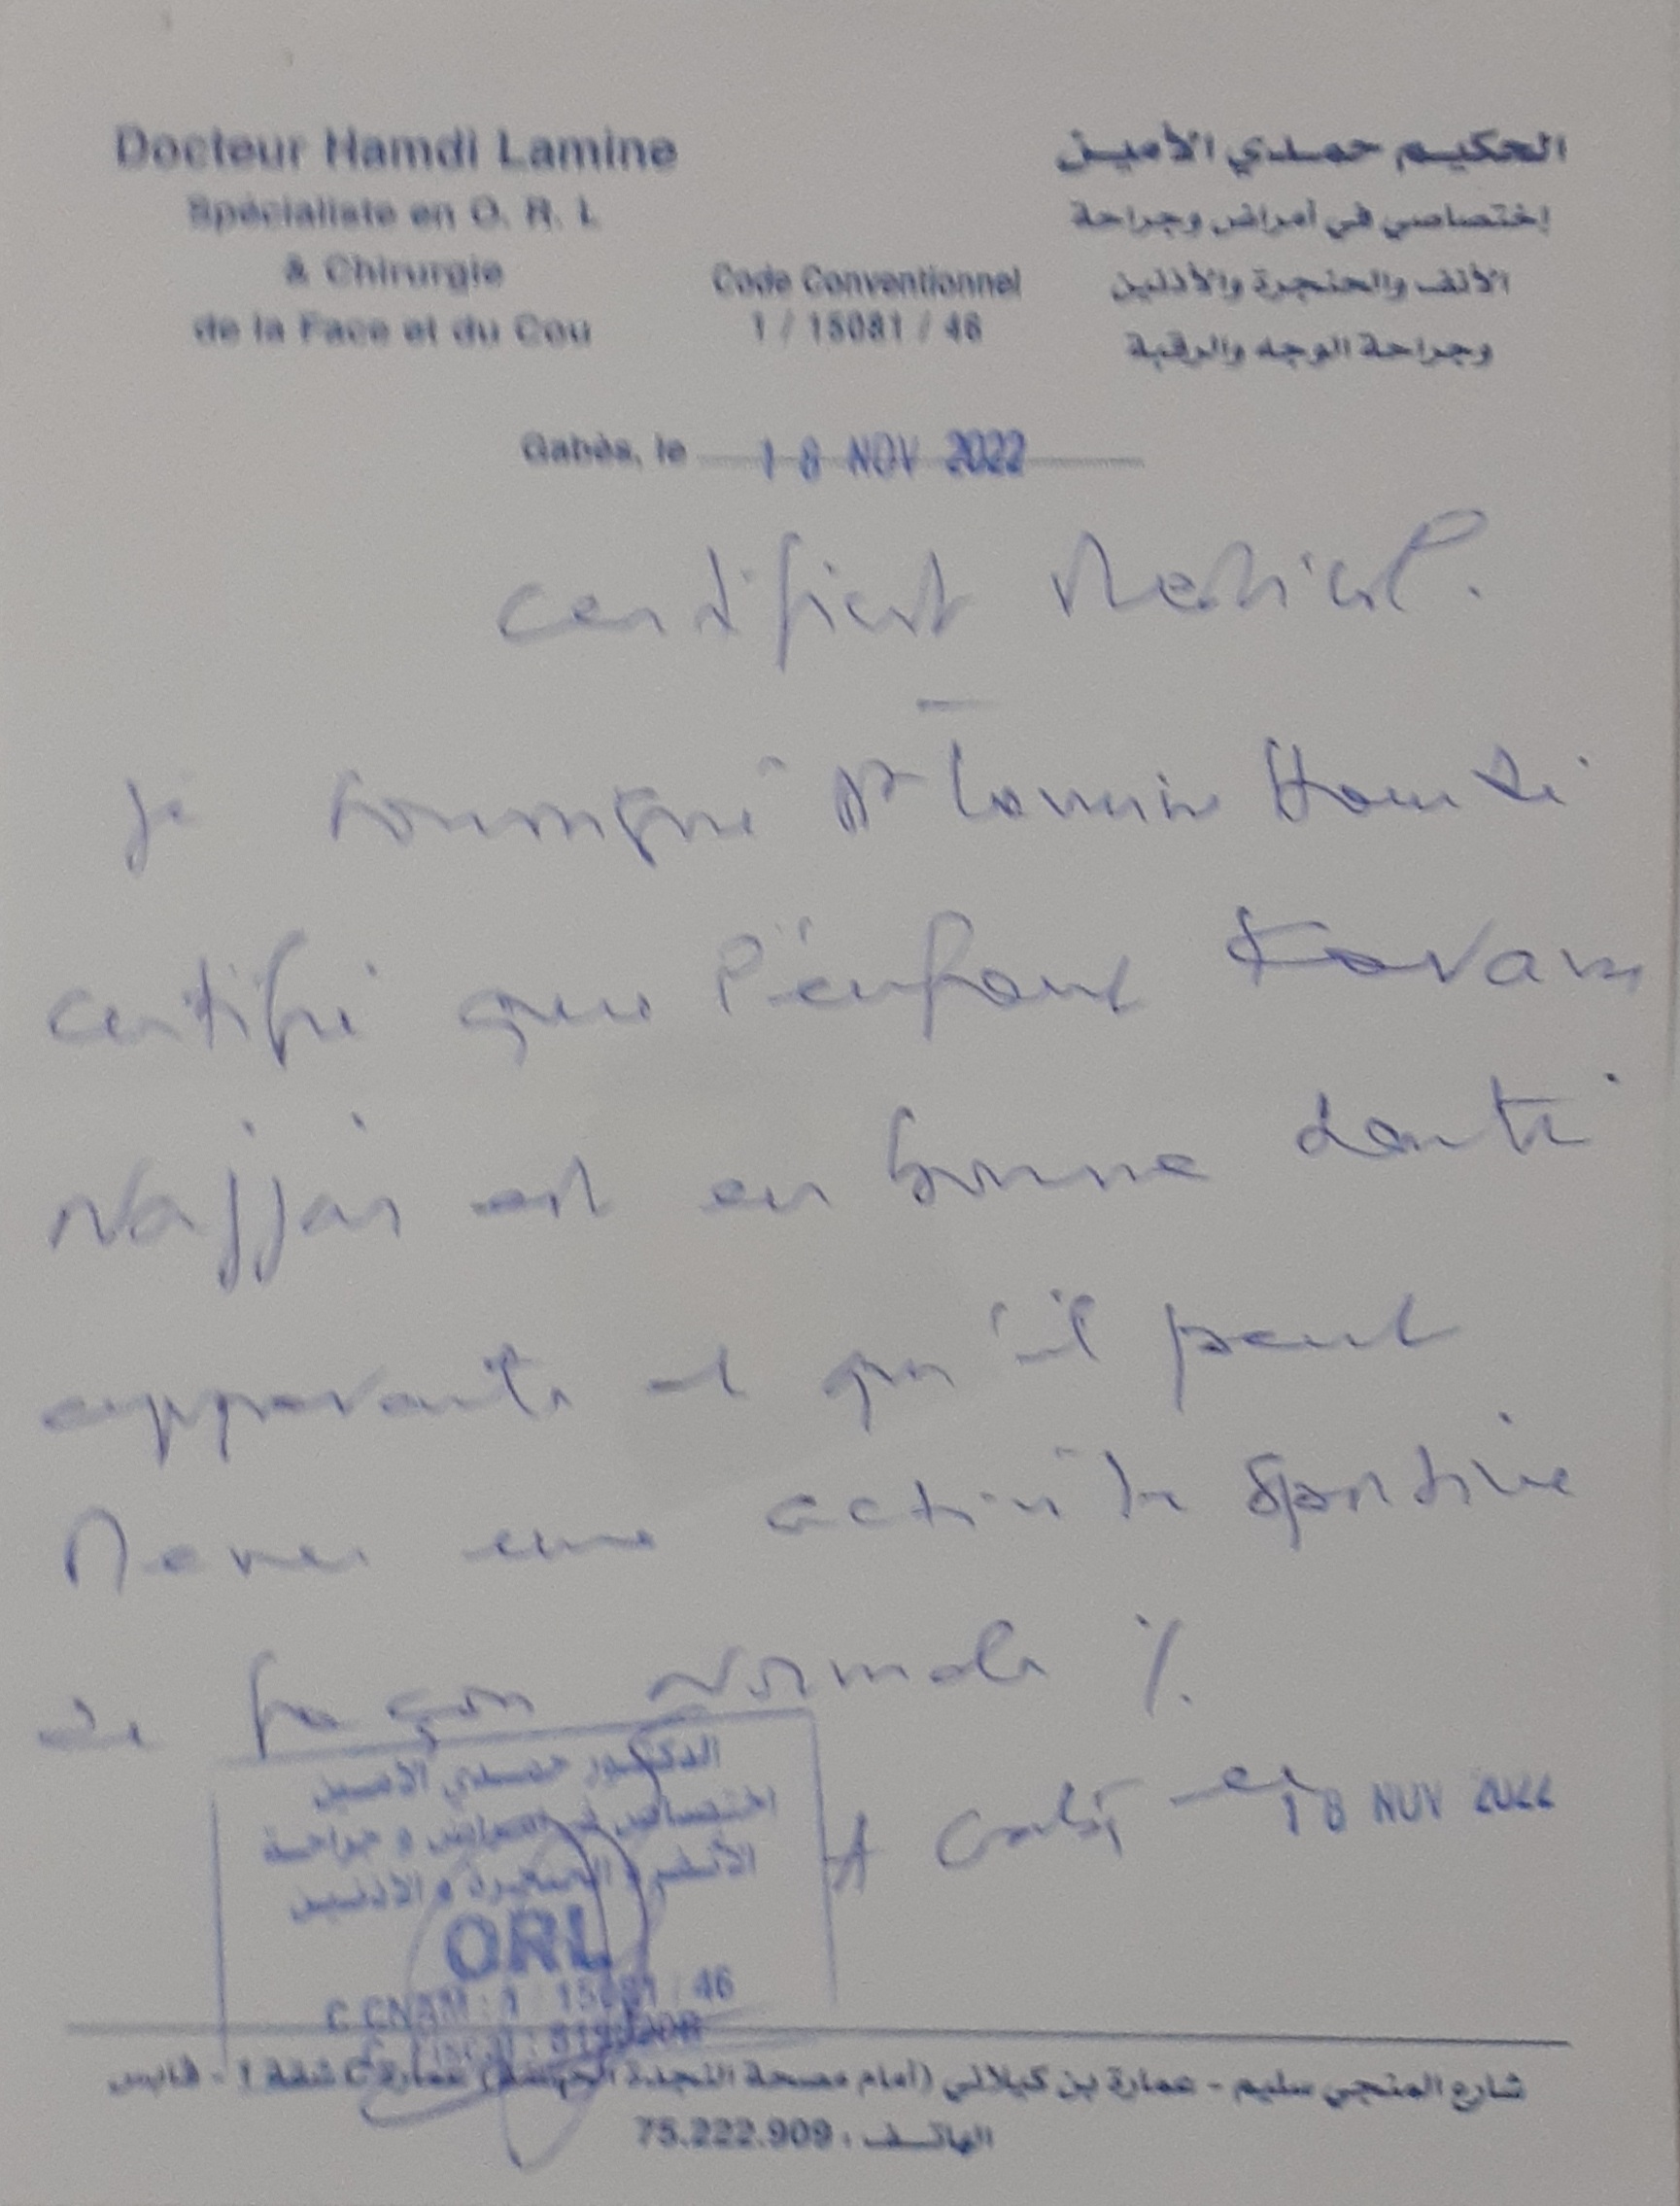 Docteur Hamdi Lamine
Spécialiste en O. R. L
& Chirurgie
de la Face et du Cou
Code Conventionnel
1 / 15081 / 46
الحكيم حمدي الأمين
إختصاصي في أمراض وجراحة
الأنف والحنجرة والأذنين
وجراحة الوجه والرقبة
Gabès, le 18 NOV 2022
Certificat Medical.
Je soussigné Dr Lamine Hamdi
certifie que l'enfant Karam
Najjar est en bonne santé
apparente et qu'il peut
Mener une activité sportive
de façon Normale
الدكتور حمدي الأمين
اختصاصي في امراض و جراحة
الأنف و الحنجرة و الاذنين
ORL
C CNAM : 1 / 15081 / 46
A Gabès le 18 NOV 2022
شارع المنجي سليم - عمارة بن كيلاني (أمام مصحة النجدة) عمارة C شقة 1 - قابس
الهاتف : 75.222.909